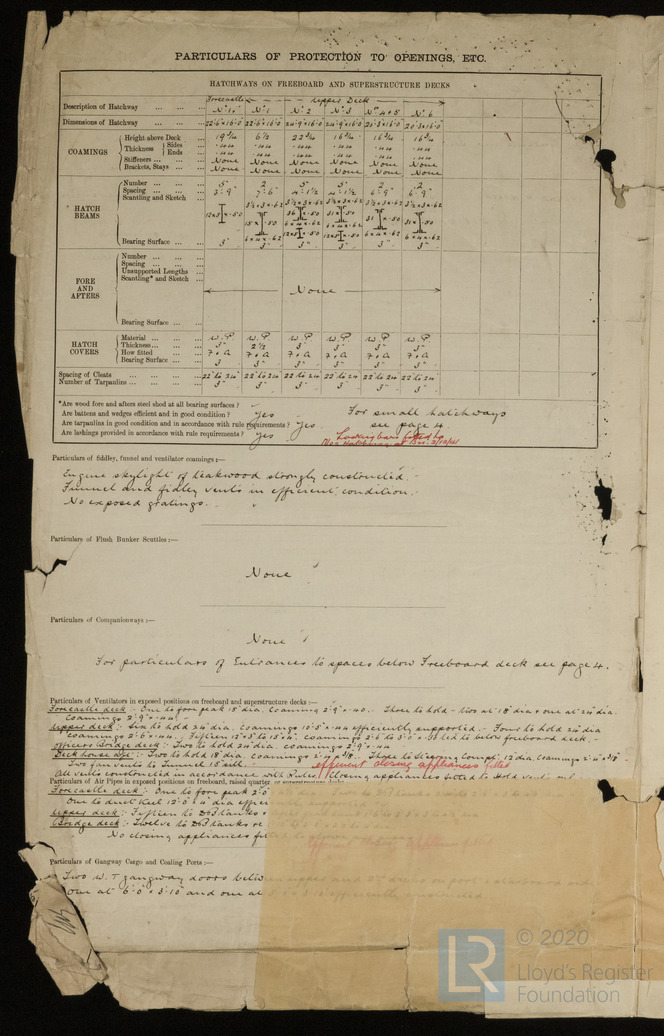 PARTICULARS OF PROTECTION TO OPENINGS, ETC.
HATCHWAYS ON FREEBOARD AND SUPERSTRUCTURE DECKS
Forecastle Upper Deck
Description of Hatchway ... ... ... No 1 No 2 No 3 No 4 + 5 No 6
Dimensions of Hatchway ... ... 22·6 x 16·0 22·6 x 16·0 24·9 x 16·0 24·9 x 16·0 20·3 x 16·0
COAMINGS
Height above Deck ... 6½ 22¾ 16¾ 16¾ 16¾
Thickness Sides ... .44 .44 .44 .44 .44 .44
Ends ... .44 .44 .44 .44 .44 .44
Stiffeners ... ... ... None None None None None None
Brackets, Stays ... ... None None None None None None
HATCH BEAMS
Number ... ... ... 5 2 5 5 2 2
Spacing ... ... ... 3·9" 7·6" 4·1½ 4·1½ 6·9" 6·9"
Scantling and Sketch ... 3½x3x.62 3½x3x.62 3½x3x.62 3½x3x.62
12x5 x.50 36 .50 31 .50 31 .50 31 .50
6x4x.62 6x4x.62 6x4x.62
Bearing Surface ... ... 3" 3" 3" 3" 3" 3"
FORE AND AFTERS
Number ... ... ...
Spacing ... ... ...
Unsupported Lengths
Scantling* and Sketch ...
None
Bearing Surface ... ...
HATCH COVERS
Material ... ... ... W.P. W.P. W.P. W.P. W.P. W.P.
Thickness ... ... ... 3" 2½ 3" 3" 3" 3"
How fitted ... ... F+A F+A F+A F+A F+A F+A
Bearing Surface ... ... 3 3" 3" 3" 3" 3"
Spacing of Cleats ... ... ... 22 to 24 22 to 24 22 to 24 22 to 24 22 to 24 22 to 24
Number of Tarpaulins ... ... ... 3 3 3 3 3 3
*Are wood fore and afters steel shod at all bearing surfaces?
Are battens and wedges efficient and in good condition? Yes For small hatchways
Are tarpaulins in good condition and in accordance with rule requirements? Yes. see page 4.
Are lashings provided in accordance with rule requirements? Yes Locking bars fitted to
Particulars of fiddley, funnel and ventilator coamings:—
Engine skylight of teakwood strongly constructed.
Funnel and fidley vents in efficient condition.
No exposed gratings.
Particulars of Flush Bunker Scuttles:—
None
Particulars of Companionways:—
None
For particulars of Entrances to spaces below Freeboard deck see page 4.
Particulars of Ventilators in exposed positions on freeboard and superstructure decks:—
Forecastle deck:- One to fore peak 18" dia. Coaming 2·9" x .40. Three to hold - two at 18" dia & one at 24" dia.
Coamings 2·9" x .44
Upper deck:- Six to hold 24" dia. Coamings 15·5" x .44 efficiently supported. Four to hold 24" dia
Coamings 2·6" x .44. Fifteen 12" x 5" to 15" x 4". Coamings 2·6 to 3·0 fitted to below freeboard deck.
Officers Bridge deck:- Two to hold 24" dia. Coamings 2·9" x .44
Deck house top:- Two to hold 18" dia. Coamings Three to Steering Compt 12" dia. Coamings
Two fan vents to Tunnel 15" sill. efficient closing appliances fitted
All vents constructed in accordance with Rules. Closing appliances fitted to Hold vents
Particulars of Air Pipes in exposed positions on freeboard, raised quarter or superstructure decks
Forecastle deck:- One to fore peak 2·0
One to duct keel 12·0 x 4 dia
Upper deck:- Fifteen to DB tanks
Bridge deck:- Twelve to DB tanks
No closing appliances
Particulars of Gangway Cargo and Coaling Ports:—
Two W.T. gangway doors
One at 6·0" x 3·10" and one at
LR
© 2020
Lloyd's Register
Foundation